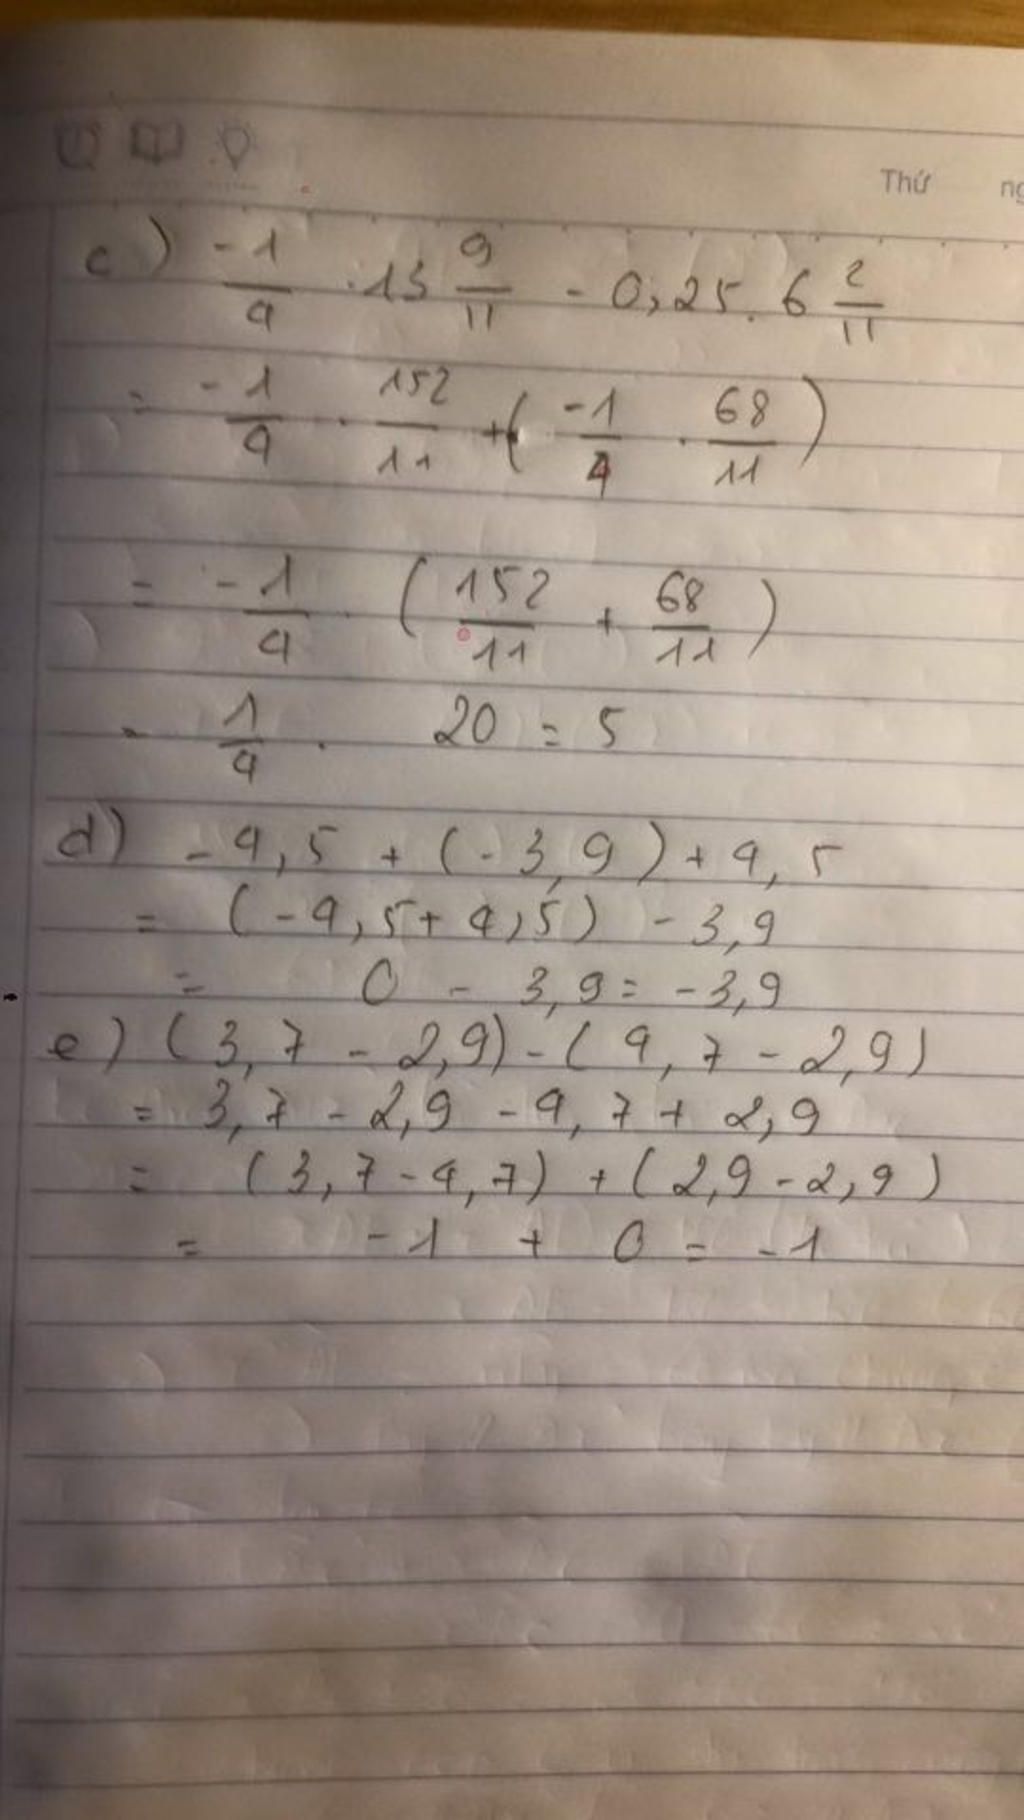 Thứ ng
c) -1/4 . 13 9/11 - 0,25 . 6 2/11
= -1/4 . 152/11 + ( -1/4 . 68/11 )
= -1/4 . ( 152/11 + 68/11 )
- 1/4 . 20 = 5
d) - 4,5 + (-3,9) + 4,5
= (-4,5 + 4,5) - 3,9
= 0 - 3,9 = -3,9
e) (3,7 - 2,9) - (4,7 - 2,9)
= 3,7 - 2,9 - 4,7 + 2,9
= (3,7 - 4,7) + (2,9 - 2,9)
= -1 + 0 = -1